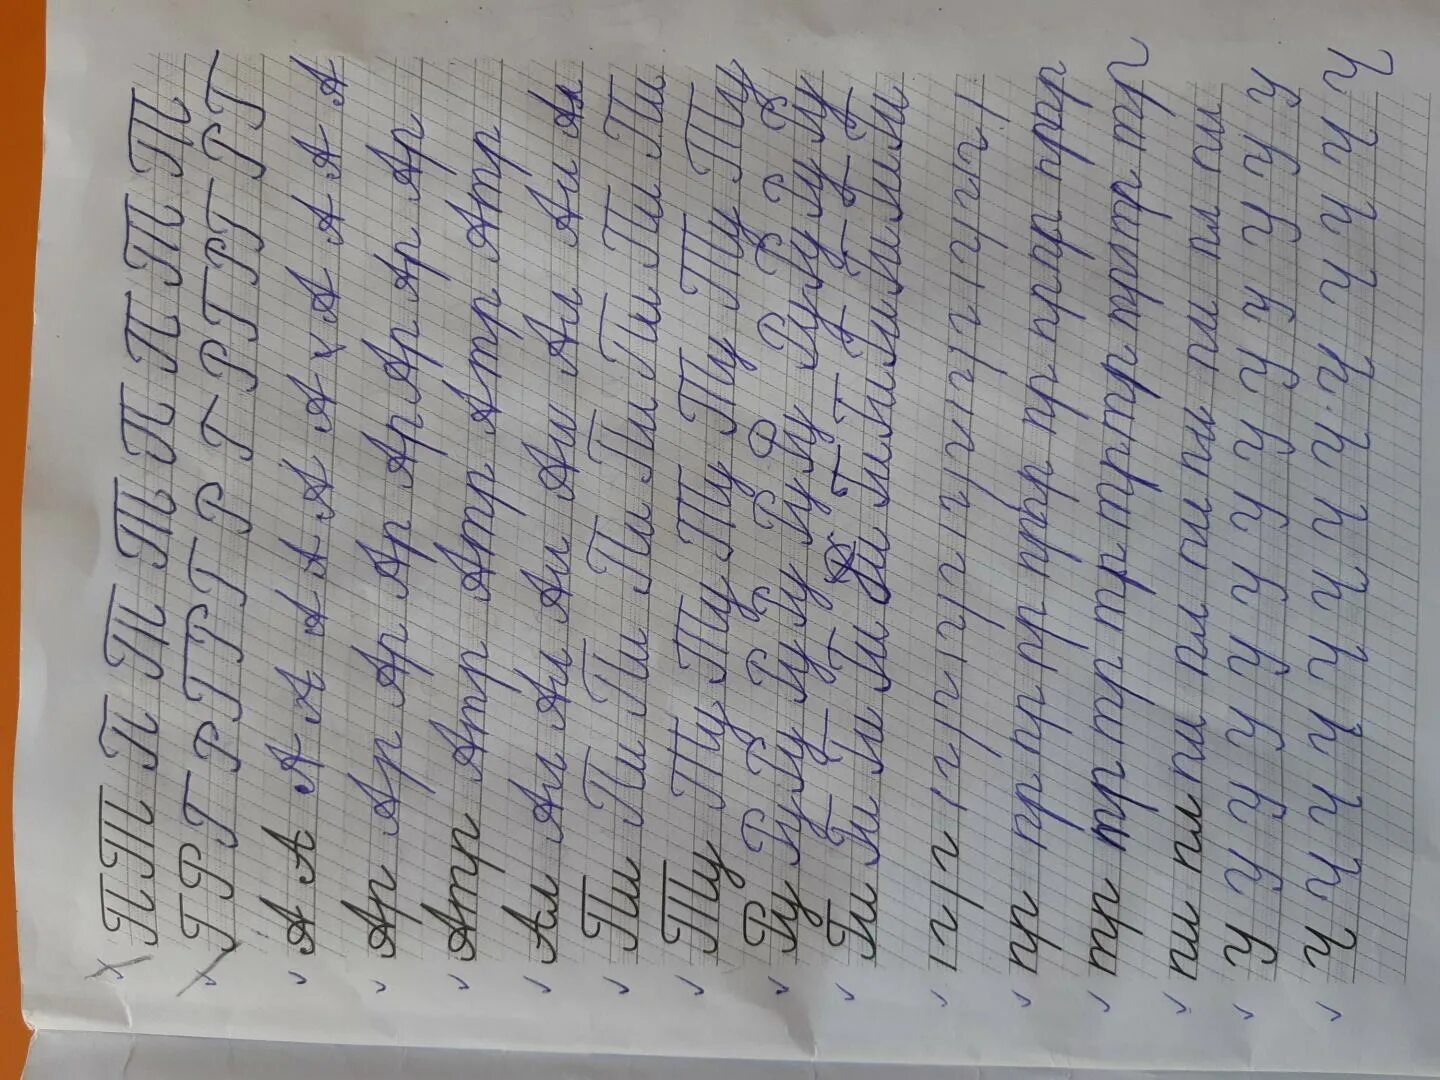 П Т П Т Т П П Т Т
Г Р Г Р Г Г Р Г Р Г Р Г Р Г
А А А А А А А А А А А А А А
Ар Ар Ар Ар Ар Ар Ар Ар
Атр Атр Атр Атр Атр Атр
Ал Ал Ал Ал Ал Ал Ал Ал
Пи Пи Пи Пи Пи Пи Пи Пи
Ту Ту Ту Ту Ту Ту Ту
Ру Ру Ру Ру Ру Ру Ру Ру Ру
Ги Ги Ги Ги Ги Ги Ги Ги Ги
г г г г г г г г г г г
пр пр пр пр пр пр пр пр пр пр
тр тр тр тр тр тр тр тр
пи пл пи пл пи пл пи пл пи пл
у у у у у у у у у у у у у
ч ч ч ч ч ч ч ч ч ч ч ч